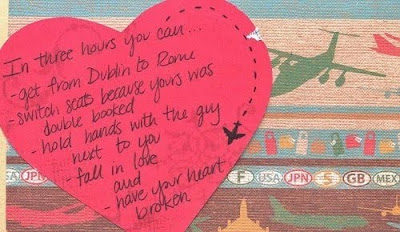 In three hours you can...
- get from Dublin to Rome
- switch seats because yours was
double booked
- hold hands with the guy
next to you
- fall in love
and
- have your heart
broken
F USA JPN S GB MEX